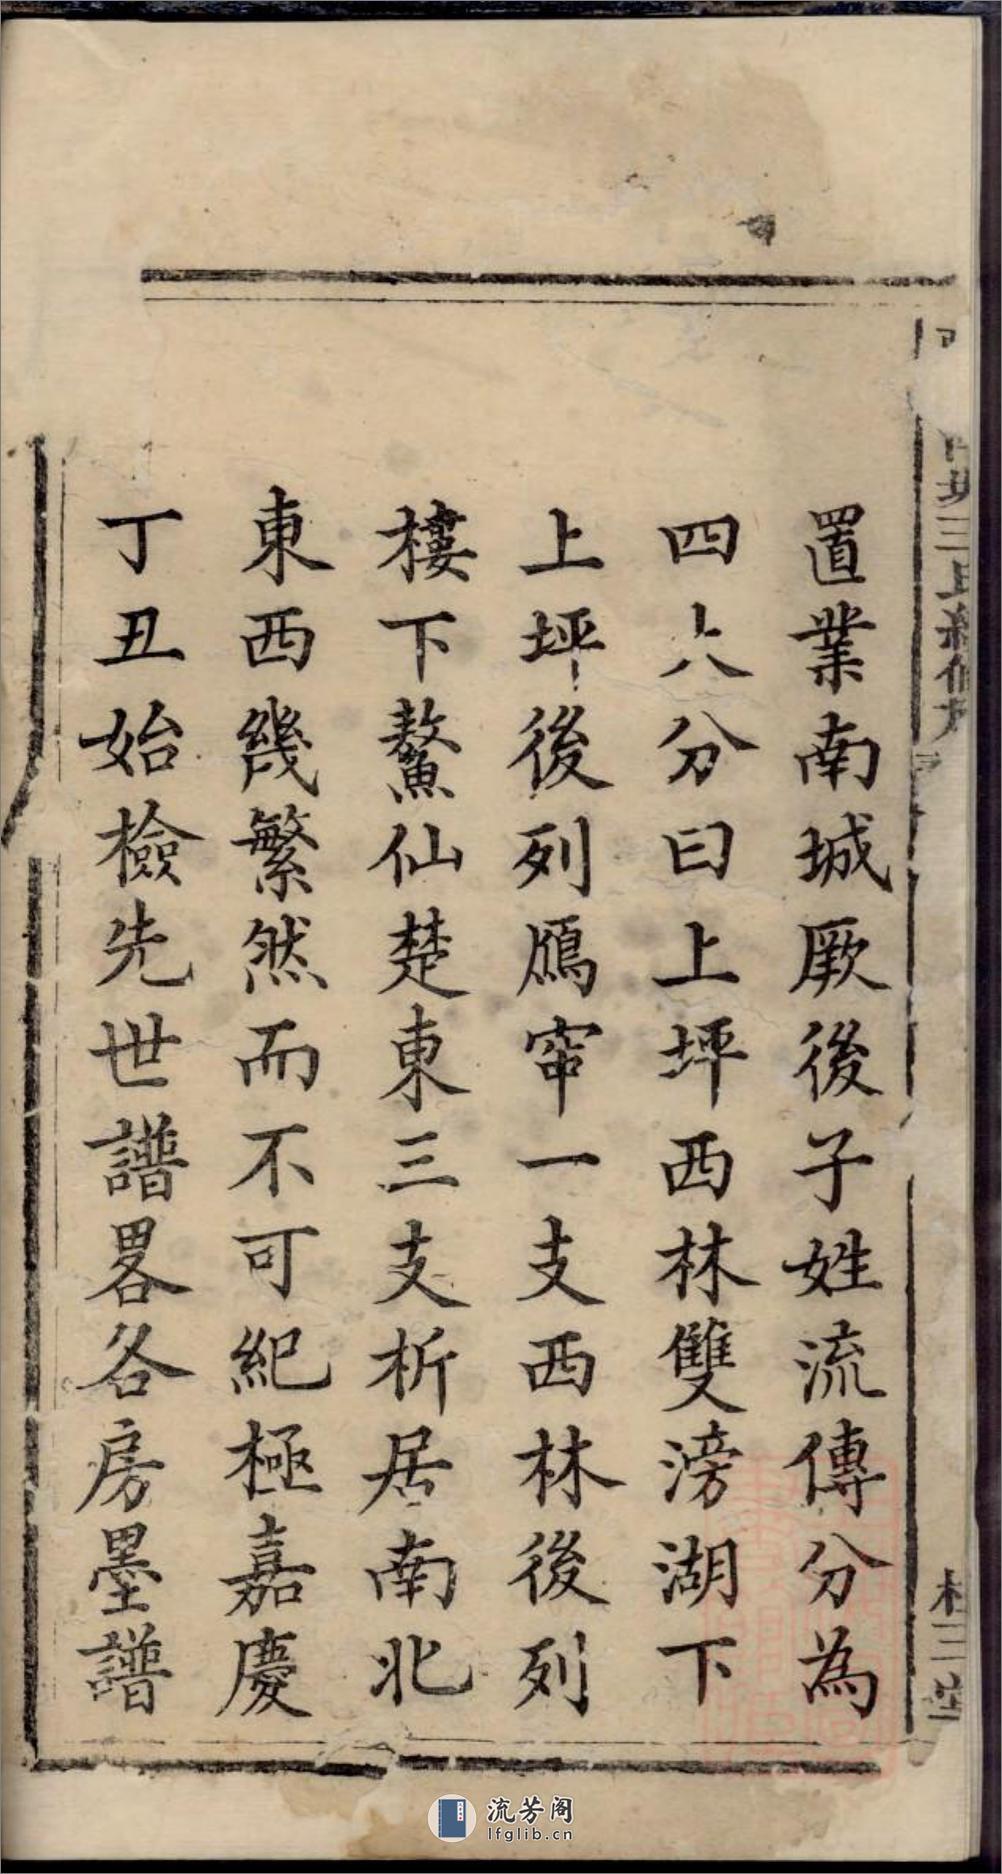 置業南城厥後子姓流傳分為
四大分曰上坪西林雙滂湖下
上坪後列鴈窜一支西林後列
樓下鰲仙楚東三支析居南北
東西幾繁然而不可紀極嘉慶
丁丑始檢先世譜畧各房墨譜
三
流芳阁
lfglib.cn